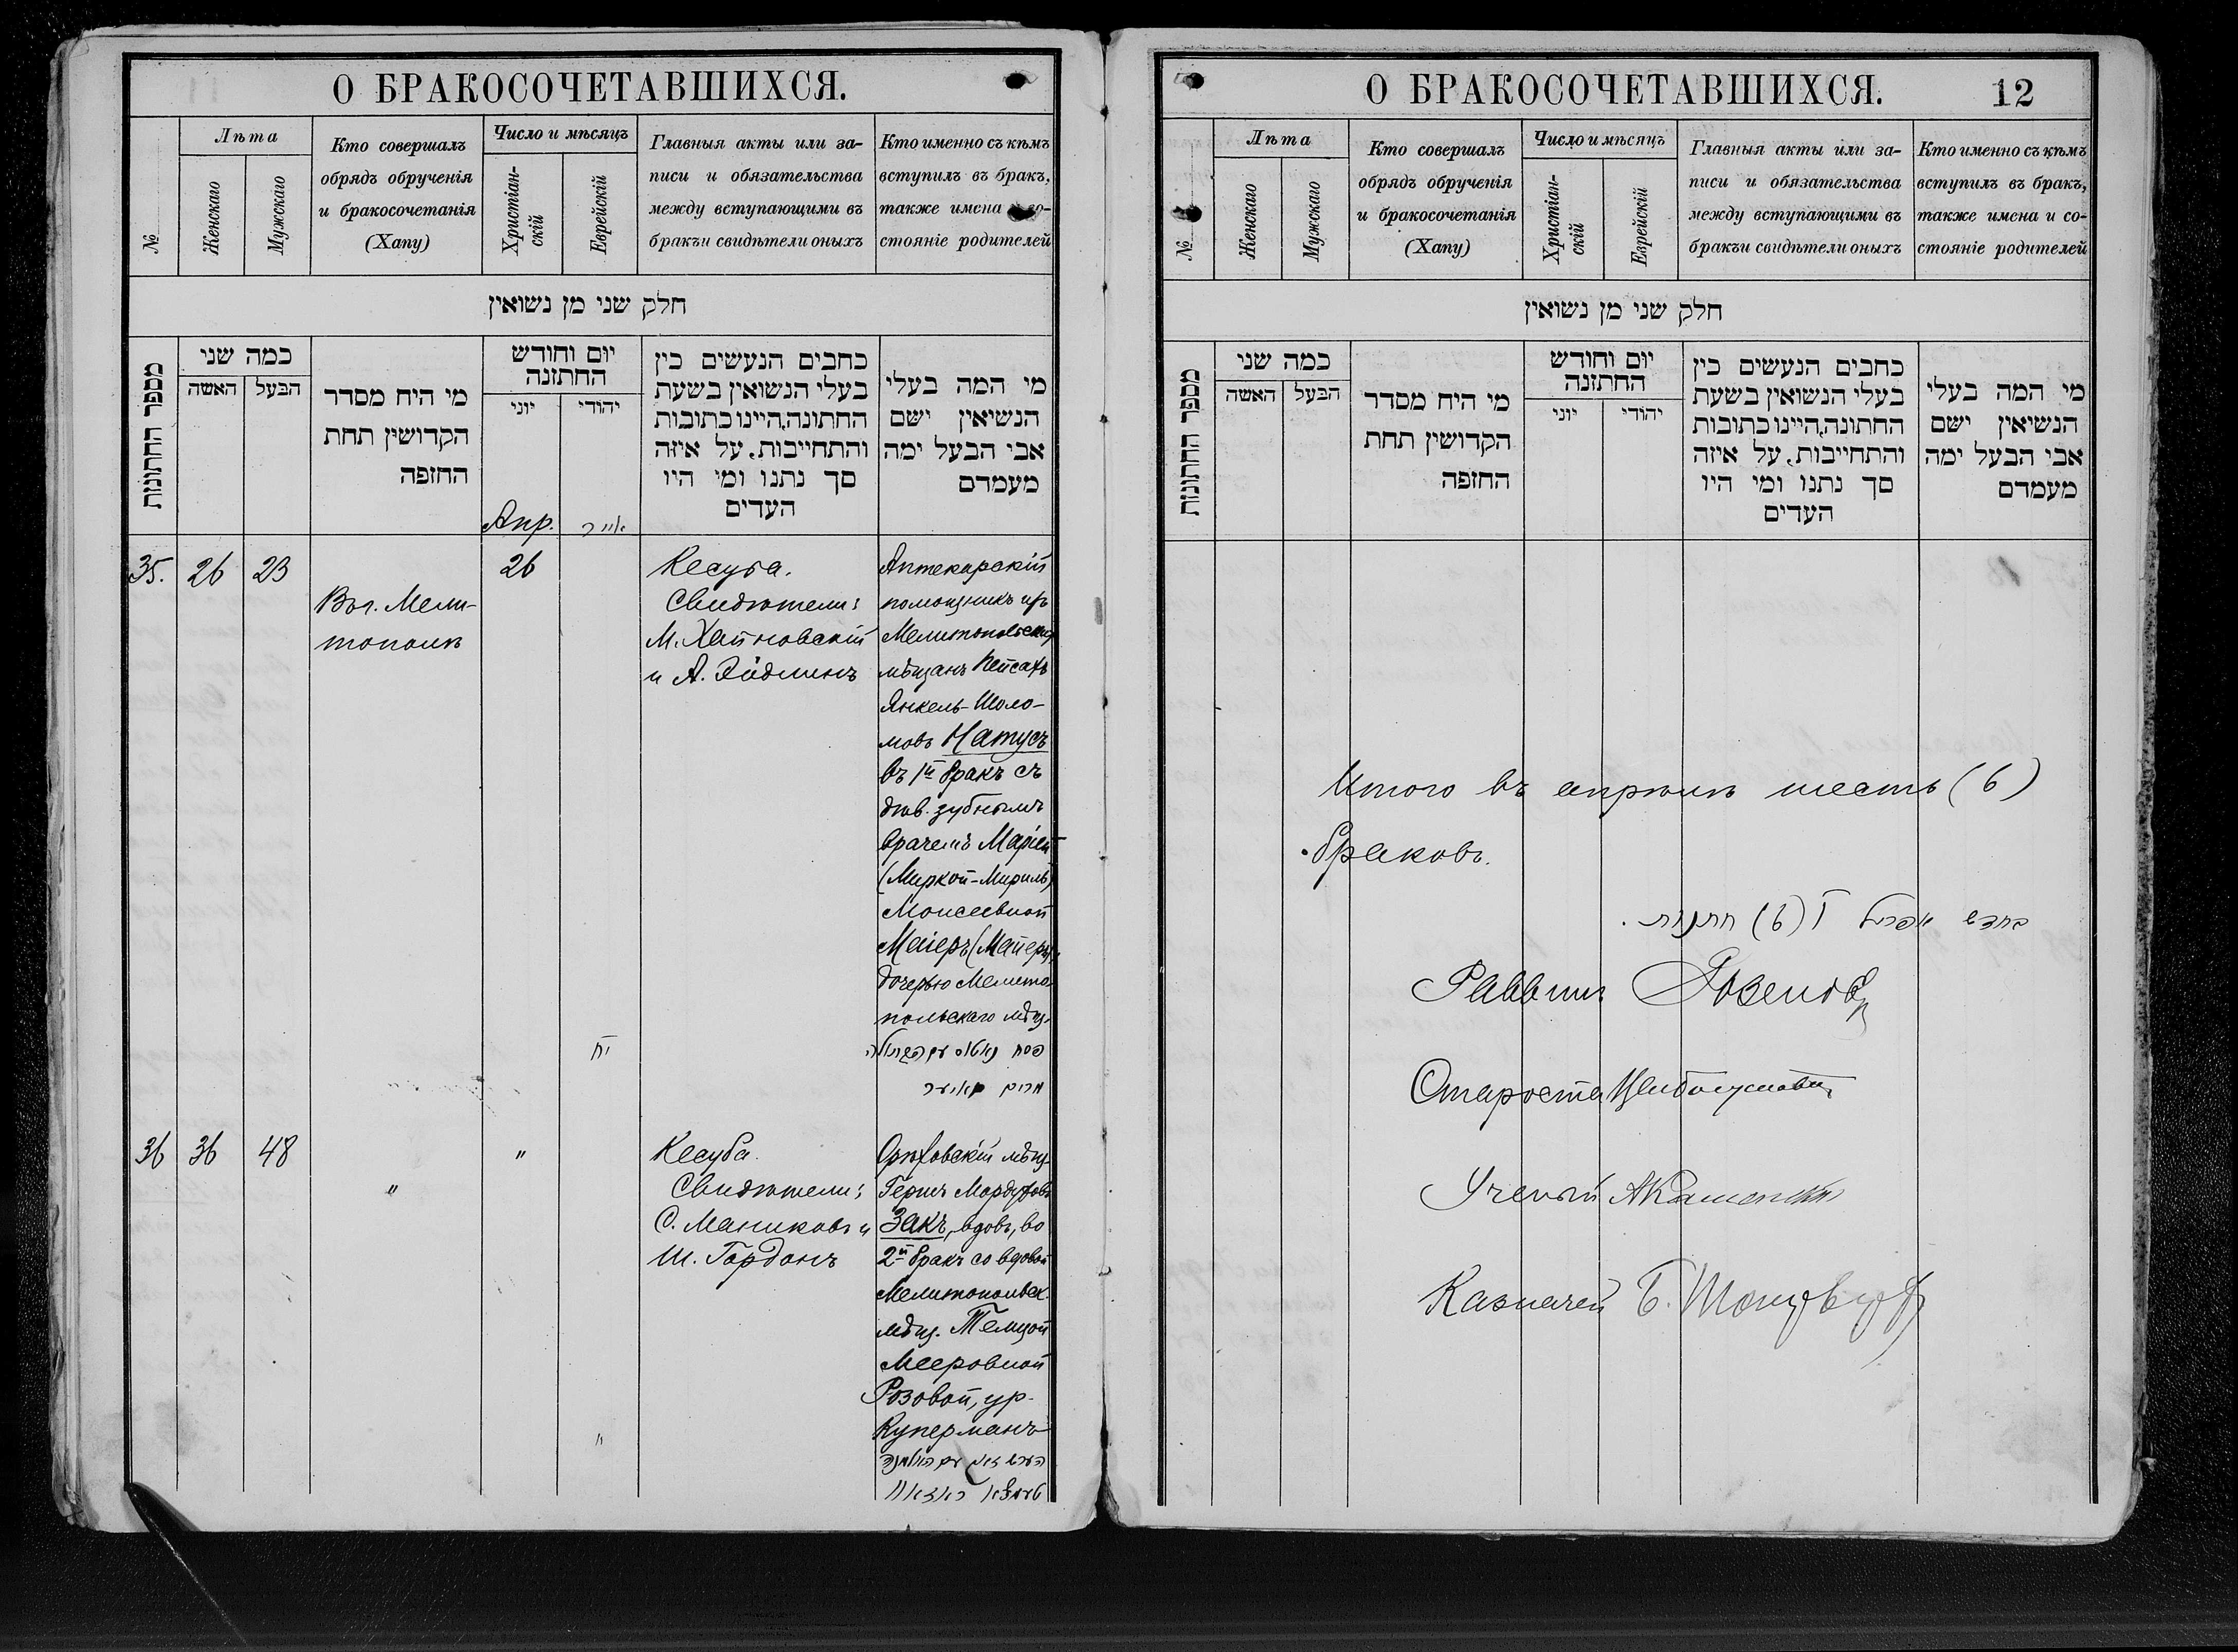 О БРАКОСОЧЕТАВШИХСЯ.
№
Лѣта
Женскаго
Мужскаго
Кто совершалъ
обрядъ обрученія
и бракосочетанія
(Хапу)
Число и мѣсяцъ
Христіан-
скій
Еврейскій
Главныя акты или за-
писи и обязательства
между вступающими въ
бракъи свидѣтели оныхъ
Кто именно съ кѣмъ
вступилъ въ бракъ,
также имена и со-
стояніе родителей
חלק שני מן נשואין
מספר החתונות
כמה שני
האשה
הבעל
מי היח מסדר
הקדושין תחת
החזפה
יום וחודש
החתזנה
יוני
יהודי
כחבים הנעשים כין
בעלי הנשואין בשעת
החתונה,היינו כתובות
והתחייבות, על איזה
סך נתנו ומי היו
העדים
מי המה בעלי
הנשיאין ישם
אבי הבעל ימה
מעמדם
Апр.
אייר
35.
26
23
Въ г. Мели-
тополѣ
26
יח
Кесуба.
Свидѣтели:
М. Хайновскій
и А. Эйдлинъ
Аптекарскій
помощникъ изъ
Мелитопольских
мѣщанъ Пейсахъ
Янкель-Шоло-
мовъ Натусъ
въ 1й бракъ съ
дѣв. зубнымъ
врачемъ Маріей
(Миркой-Мириль)
Моисеевной
Маіеръ (Майеръ),
дочерью Мелито
польскаго мѣщ.
פסח נאטוס עם הבתולה
מרים מאיער
36
36
48
"
"
"
Кесуба.
Свидѣтели:
С. Маниковъ и
Ш. Гордонъ
Орѣховскій мѣщ.
Гершъ Мордуховъ
Закъ, вдовъ, во
2й бракъ со вдовой
Мелитопольск.
мѣщ. Темцой
Мееровной
Розовой, ур.
Куперманъ
הערש זאק עם האלמנה
О БРАКОСОЧЕТАВШИХСЯ.
12
№
Лѣта
Женскаго
Мужскаго
Кто совершалъ
обрядъ обрученія
и бракосочетанія
(Хапу)
Число и мѣсяцъ
Христіан-
скій
Еврейскій
Главныя акты или за-
писи и обязательства
между вступающими въ
бракъи свидѣтели оныхъ
Кто именно съ кѣмъ
вступилъ въ бракъ,
также имена и со-
стояніе родителей
חלק שני מן נשואין
מספר החתונות
כמה שני
האשה
הבעל
מי היח מסדר
הקדושין תחת
החזפה
יום וחודש
החתזנה
יוני
יהודי
כחבים הנעשים כין
בעלי הנשואין בשעת
החתונה,היינו כתובות
והתחייבות, על איזה
סך נתנו ומי היו
העדים
מי המה בעלי
הנשיאין ישם
אבי הבעל ימה
מעמדם
Итого въ апрѣлѣ шесть (6)
браковъ.
בחדש אפריל ו (6) חתנות.
Раввинъ
Староста
Ученый
Казначей Б.